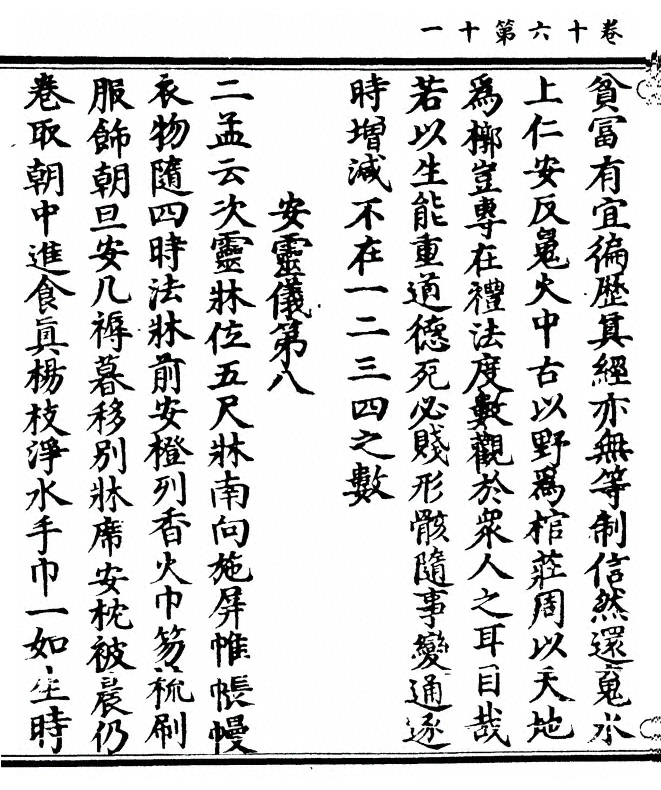 卷十六第十一
貧冨有宜徧歷真經亦無等制信然還寬水
上仁安反冕火中古以野爲棺莊周以天地
爲槨豈專在禮法度數觀於衆人之耳目哉
若以生能重道德死必賤形骸隨事變通逐
時增減不在一二三四之數
安靈儀第八
二孟云次靈牀位五尺牀南向施屏帷帳幔
衣物隨四時法牀前安橙列香火巾笏梳刷
服飾朝旦安几褥暮移別牀席安枕被晨仍
卷取朝中進食真楊枝淨水手巾一如生時